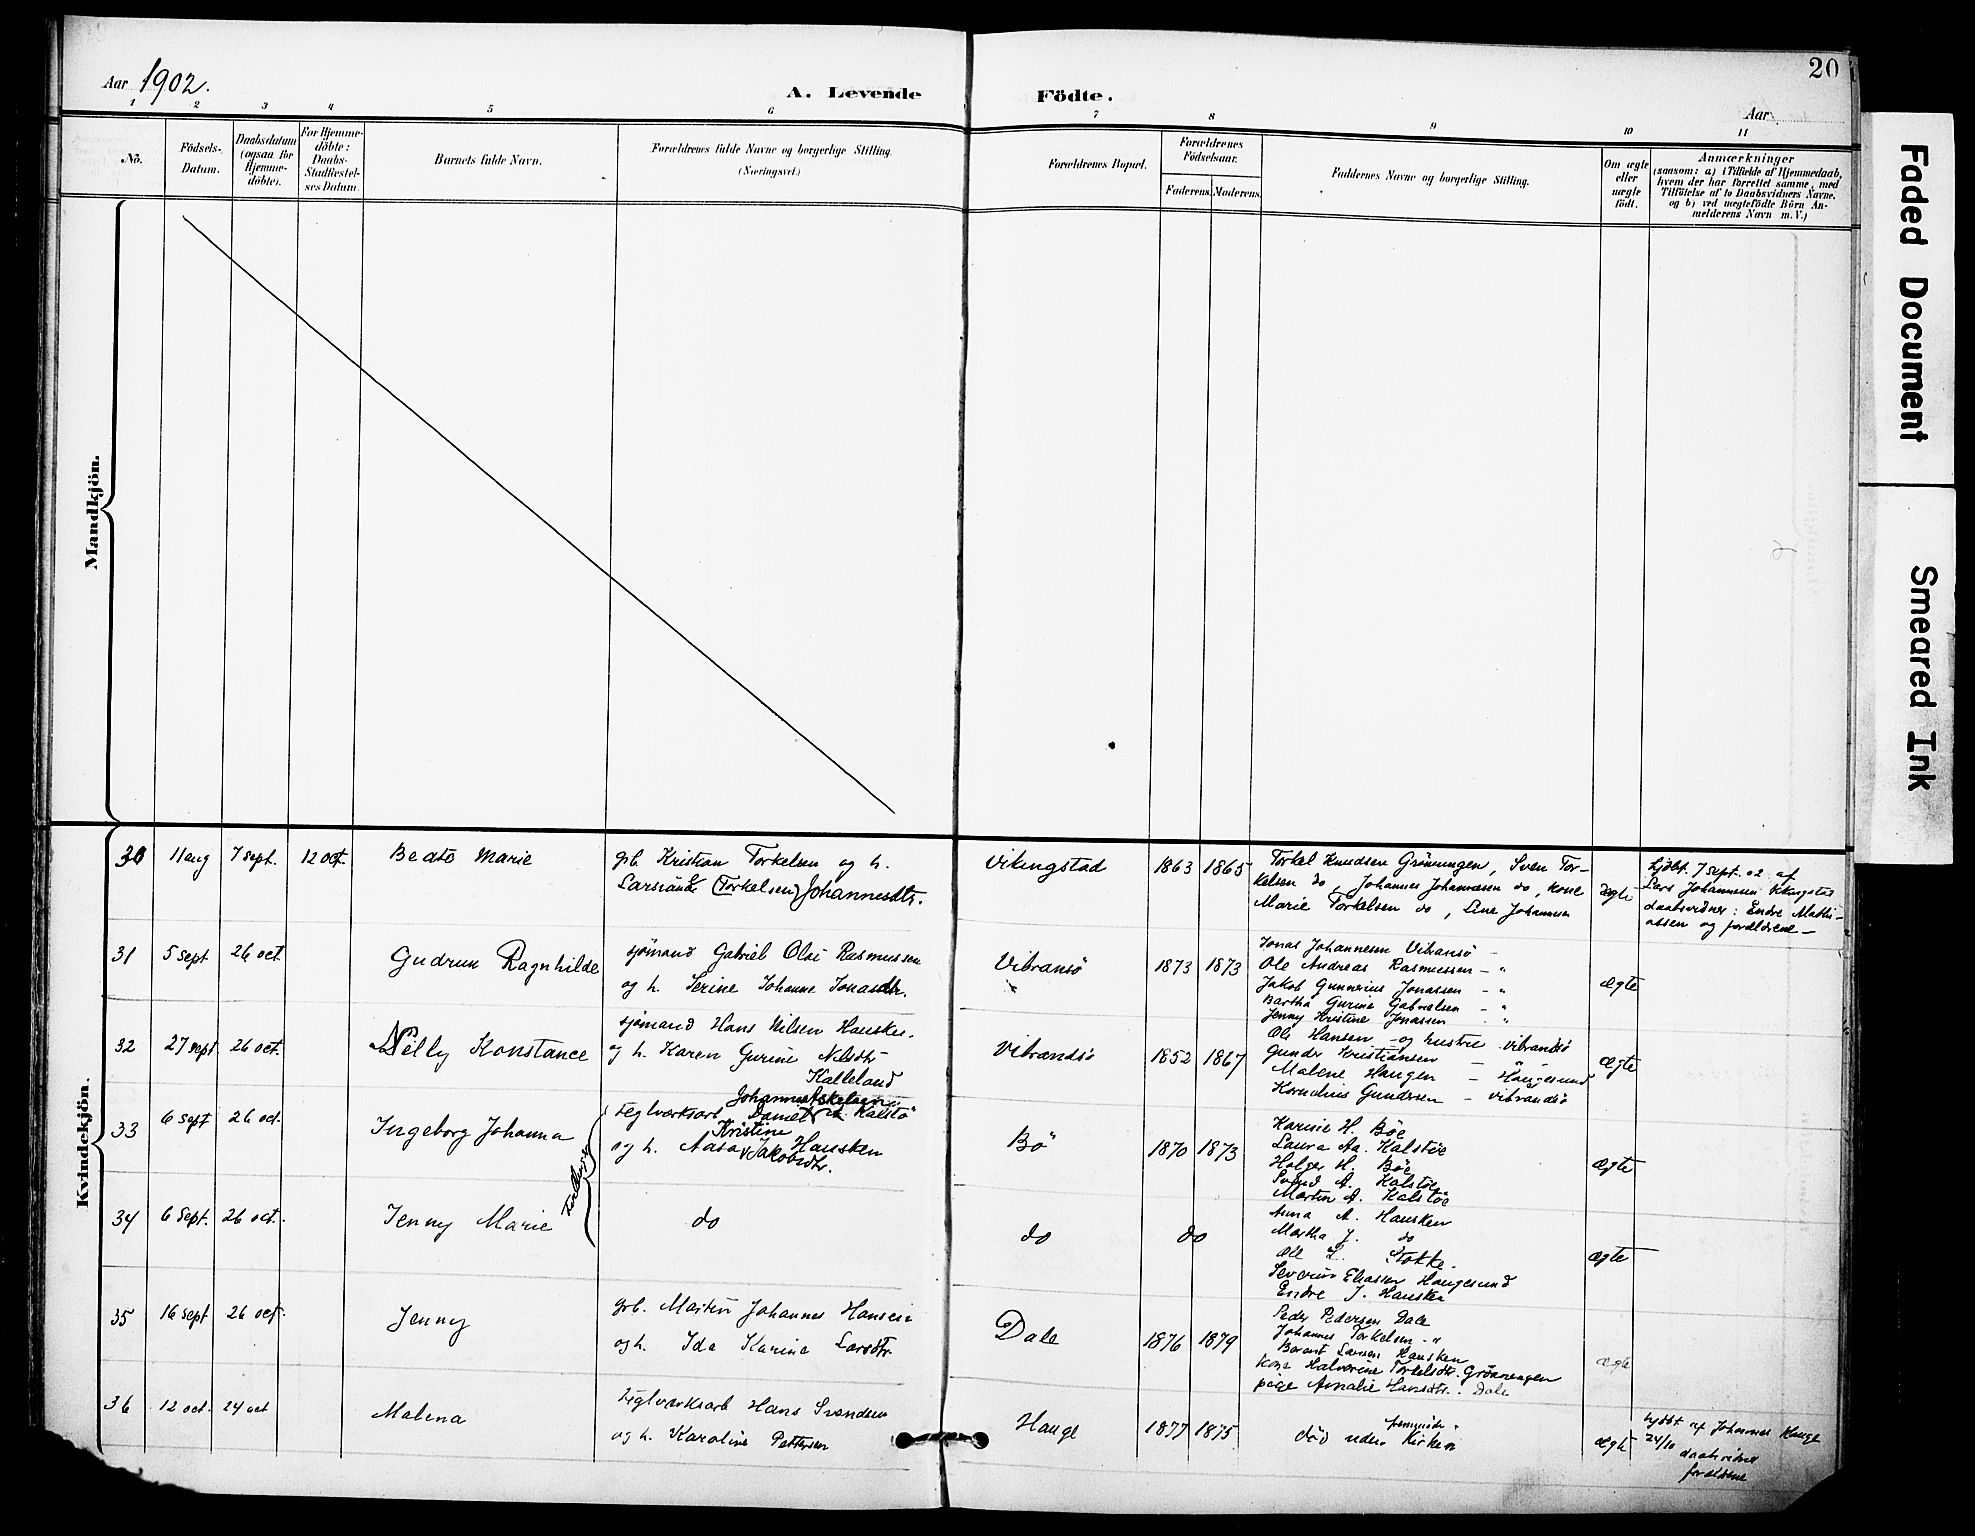 Aar 1902.
A. Levende Födte.
Aar
20
1 2 3 4 5 6 7 8 9 10 11
No.
Födsels-
Datum.
Daabsdatum
(ogsaa for
Hjemme-
döbte).
For Hjemme-
döbte:
Daabs-
Stadfæstel-
ses Datum.
Barnets fulde Navn.
Forældrenes fulde Navne og borgerlige Stilling.
(Næringsvei.)
Forældrenes Bopæl.
Forældrenes
Födselsaar.
Faderens. Moderens.
Faddernes Navne og borgerlige Stilling.
Om ægte
eller
uægte
födt.
Anmærkninger
(saasom: a) i Tilfælde af Hjemmedaab,
hvem der har forrettet samme, med
Tilföielse af to Daabsvidners Navne,
og b) ved uægtefödte Börn An-
melderens Navn m. V.)
Mandkjön.
Kvindekjön.
30 11 aug 7 sept. 12 oct. Beate Marie
grb. Kristian Torkelsen og h.
(Torkelsen) Johannesdtr.
Vikingstad 1863 1865
Torkel Knudsen Grönningen, Sven Tor-
kelsen do, Johannes Johannesen do, kone
Marie Torkelsen do, Line Johannesen
ægte
hjdbt. 7 sept. 02 af
Lars Johannesen Vikingstad
daabsvidner: Endre Mathi-
assen og forældrene
31 5 sept 26 oct. Gudrun Ragnhilde
sjömand Gabriel Olai Rasmussen
og h. Serine Johanne Jonasdtr.
Vibransö 1873 1873
Jonas Johannesen Vibransö
Ole Andreas Rasmussen - "
Jakob Gunnerius Jonassen - "
Bartha Gurine Gabrielsen - "
Jenny Kristine Jonassen "
ægte
32 27 sept 26 oct. Nelly Konstance
sjömand Hans Nilsen Hausken
og h. Karen Gurine Nilsdtr
Kalleland
Vibrandsö 1852 1867
Ole Hansen - og hustru Vibrandsö
Gunder Kristiansen
Malene Haugen - Haugesund
Kornelius Gundersen - Vibrandsö
ægte
33 6 sept 26 oct. Ingeborg Johanna
Johannes
teglværksarb Daniel Kalstö
Kristine
og h. Aasa Jakobsdtr. Hausken
Bö 1870 1873
Karine H. Böe
Laura Aa. Kalstöe
Holger H. Böe
Svend A. Kalstöe
Martin A. Kalstöe
ægte
Tvillinger
34 6 sept. 26 oct. Jenny Marie
do do do
Anna A. Hausken
Martha J. do
Ole L. Stokke.
Severin Eliassen Haugesund
Endre J. Hausken
ægte
35 16 sept 26 oct. Jenny
grb. Martin Johannes Hansen
og h. Ida Karine Larsdtr
Dale 1876 1879
Peder Pedersen Dale
Johannes Torkelsen - "
Berent Larsen Hausken
kone Halvorine Torkelsdtr. Grönnengen
pige Amalie Hansdtr. Dale
ægte
36 12 oct. 24 oct Malena
teglværksarb Hans Svendsen
og h. Karoline Pettersen
Hauge 1877 1875
död uden fremmöde i Kirken
ægte
hjdbt af Johannes Hauge
24/10 daabsvidner
forældrene
Faded Document
Smeared Ink